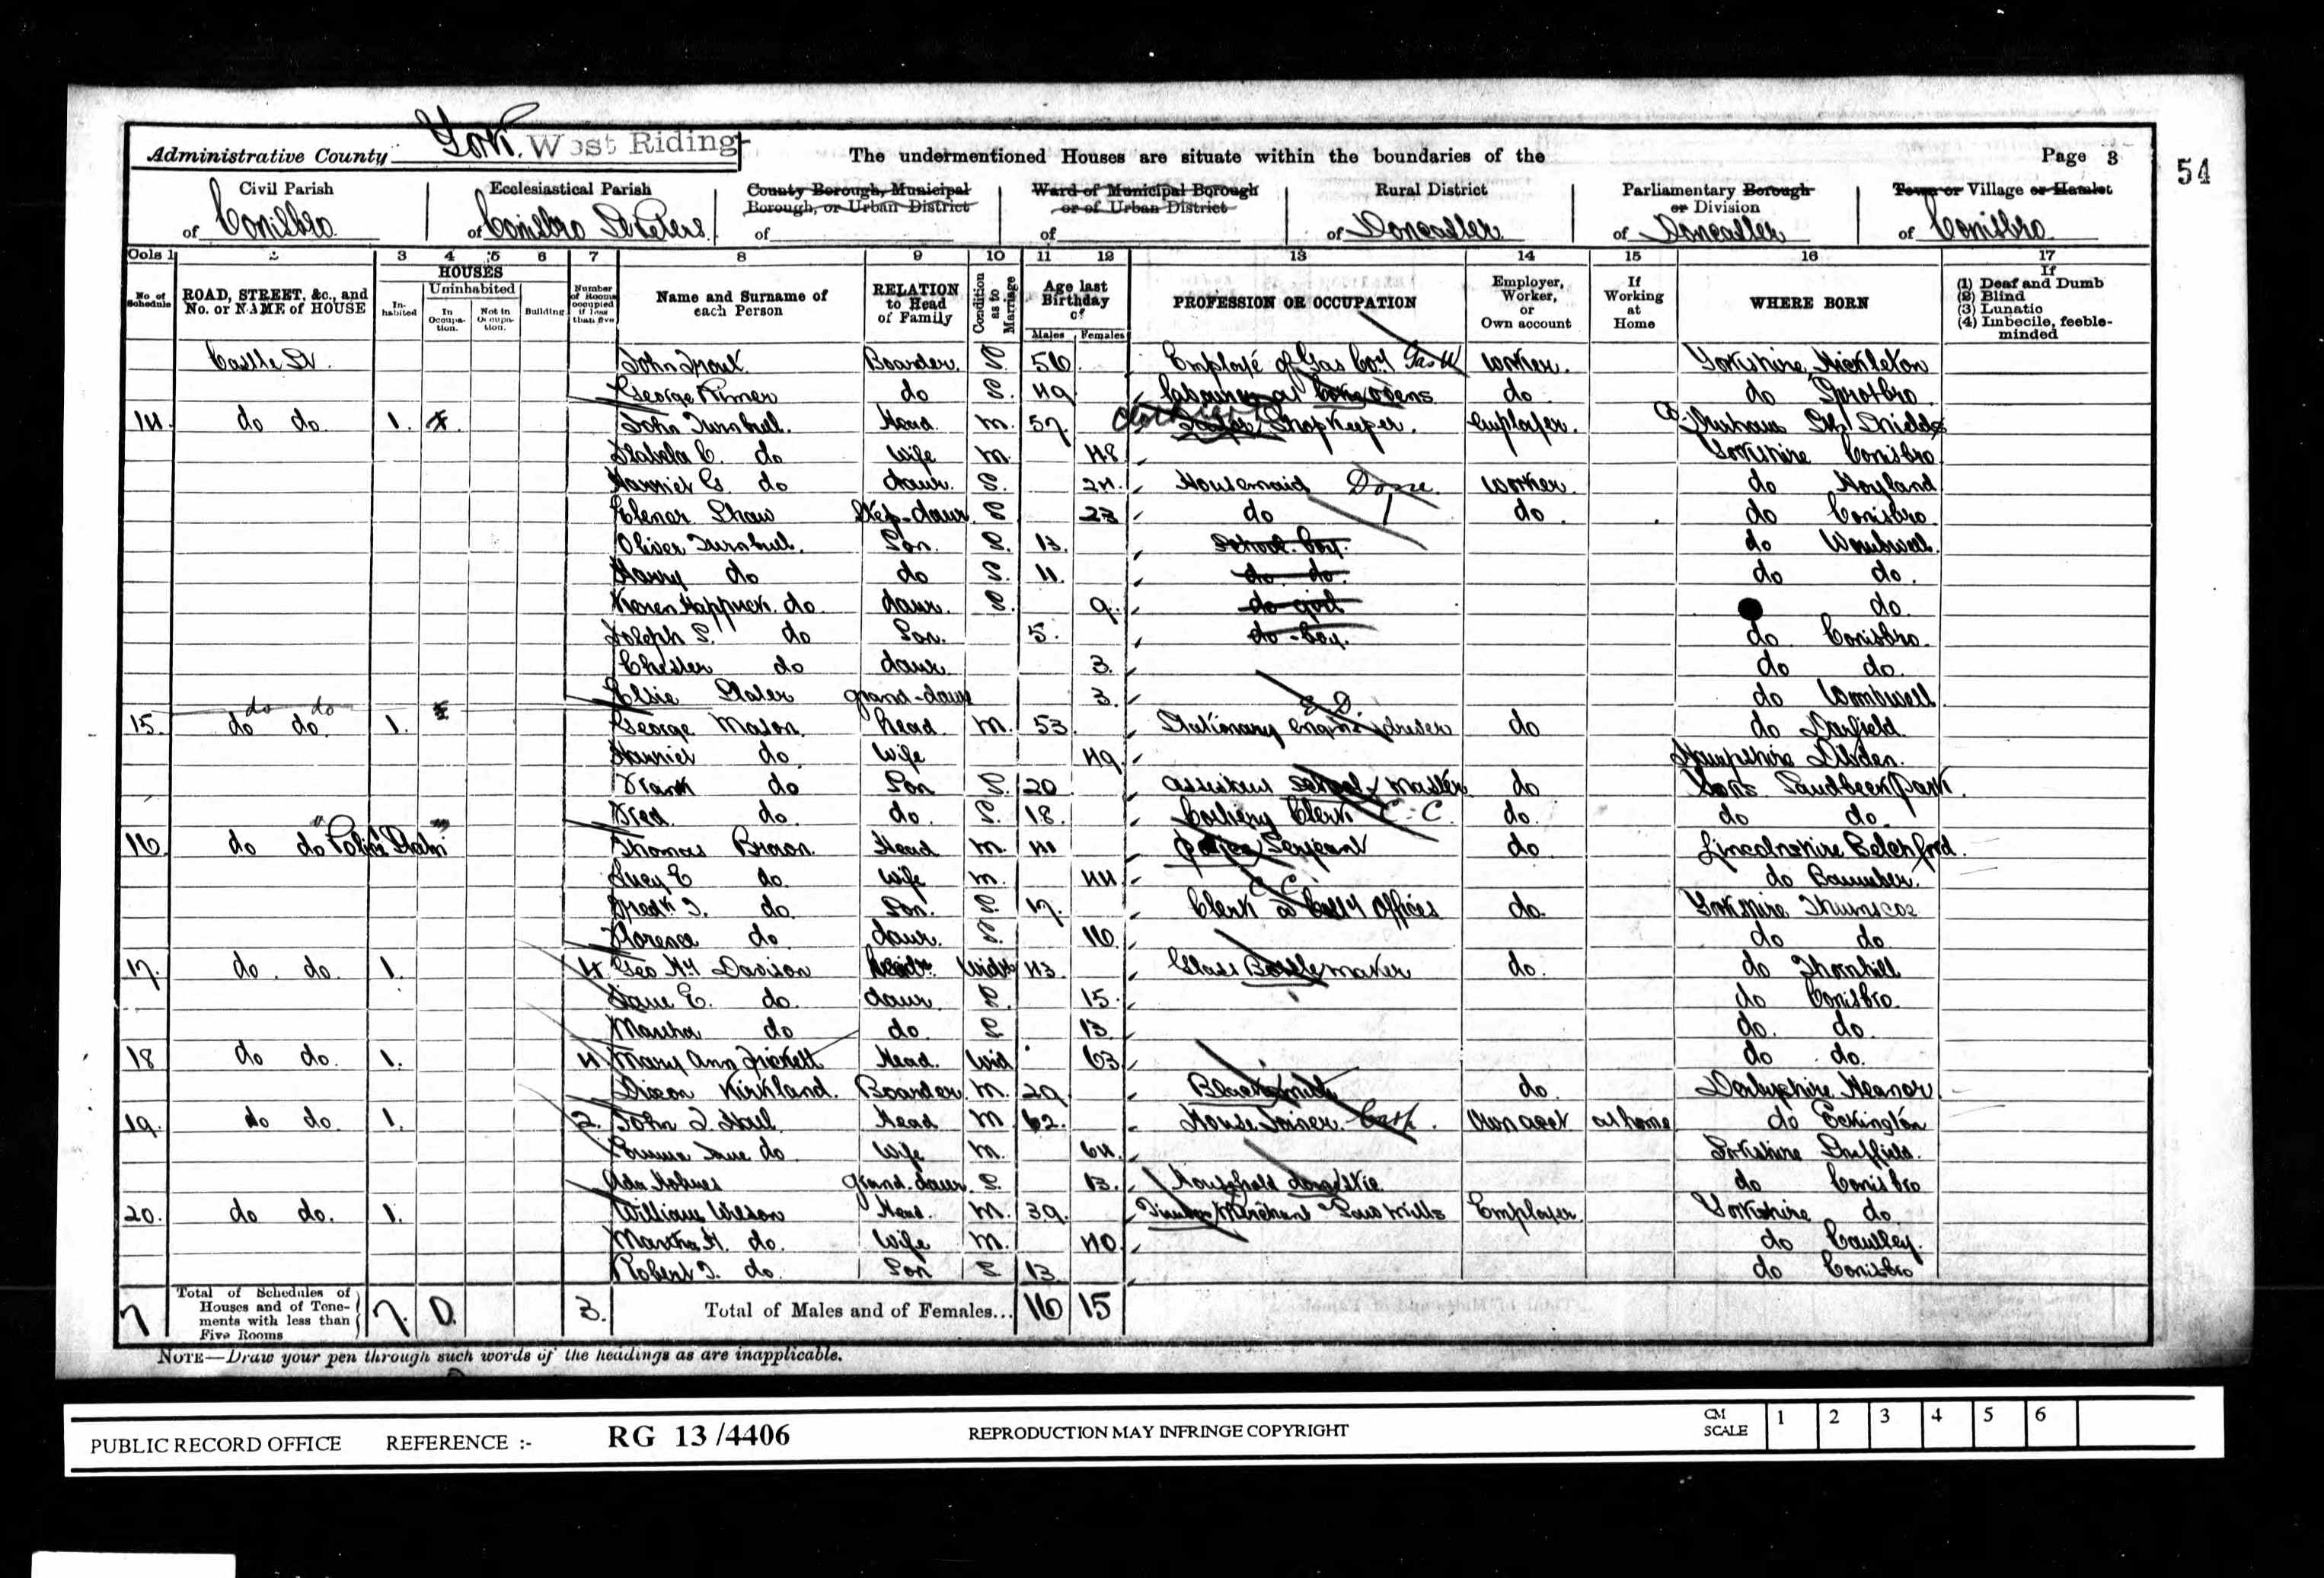 Administrative County York. West Riding
The undermentioned Houses are situate within the boundaries of the
Page 3
54
Civil Parish of Conisbro
Ecclesiastical Parish of Conisbro St Peters
County Borough, Municipal Borough, or Urban District of
Ward of Municipal Borough or of Urban District of
Rural District of Doncaster
Parliamentary Borough or Division of Doncaster
Town or Village or Hamlet of Conisbro
Cols 1 2 3 4 5 6 7 8 9 10 11 12 13 14 15 16 17
No. of Schedule
ROAD, STREET, &c., and No. or NAME of HOUSE
HOUSES
Inhabited
Uninhabited
In Occupation.
Not in Occupation.
Building
Number of Rooms occupied if less than five
Name and Surname of each Person
RELATION to Head of Family
Condition as to Marriage
Age last Birthday of
Males Females
PROFESSION OR OCCUPATION
Employer, Worker, or Own account
If Working at Home
WHERE BORN
If (1) Deaf and Dumb (2) Blind (3) Lunatic (4) Imbecile, feeble-minded
Castle St John Boarder. S. 56 Employé of Gas Coy Gas W Worker. Yorkshire, Hickleton
George Rimer do S. 49 Labourer at Coke Ovens do do Sprotbro
14. do do. 1. John Turnbul. Head. m. 57. Shopkeeper. Employer. Co. Durham Sth Shields
Isabela C. do Wife m. 48 Yorkshire Conisbro
Harriet G. do daur. S. 24. Housemaid Dom. Worker. do Hoyland
Elenor Shaw Step-daur. S 23 do do. do Conisbro
Oliver Turnbul. Son. S. 13. School boy. do Wombwell.
Harry do do S. 11. do. do. do do.
Keren Happuch. do daur. S. 9. do girl do.
Joseph S. do Son. 5. do - boy. do Conisbro.
Chester do daur 3. do do.
Elsie Slater grand-daur 3. do Wombwell
do do
15. do do. 1. George Mason. head. M. 53. Stationary engine driver S.D. do do Darfield.
Harriet do. Wife 49. Hampshire Dibden.
Frank do Son S. 20 assistant school master do Yorks Sandbeck Park.
Fred. do. do. S. 18. Colliery Clerk C.C. do. do do.
16. do do Police Station Thomas Brown. Head m. 41 Police Serjeant do Lincolnshire Belchford.
Lucy E do. Wife m. 44. do Baumber.
Fredk T. do. Son. S. 17. Clerk at Colly Offices C C do. Yorkshire Thurnscoe
Florence do. daur. S. 16. do do
17. do. do. 1. 4 Geo Hy Davison head Widr 43. Glass Bottle maker do. do Thornhill
Jane E. do. daur S. 15. do Conisbro.
Martha do do. S 13. do. do.
18 do do. 1. 4 Mary Ann Head. Wid 63 do do.
Dixon Kirkland. Boarder. m. 29. Blacksmith do. Derbyshire Heanor
19. do do. 1. 2. John T. Hall Head M. 62. House Joiner. Carp. Own acct at home do Eckington
Emma Jane do. Wife m. 64. Yorkshire Sheffield.
Ada Holmes grand-daur. S. 13. Household domestic do Conisbro
20. do do. 1. William Wilson Head. m. 39. Timber Merchant Saw Mills Employer. Yorkshire do
Martha H. do. Wife m. 40. do Cantley.
Robert T. do. Son S 13. do Conisbro
7 Total of Schedules of Houses and of Tenements with less than Five Rooms 7. 0. 3. Total of Males and of Females... 16 15
NOTE—Draw your pen through such words of the headings as are inapplicable.
PUBLIC RECORD OFFICE REFERENCE :- RG 13 /4406 REPRODUCTION MAY INFRINGE COPYRIGHT CM SCALE 1 2 3 4 5 6